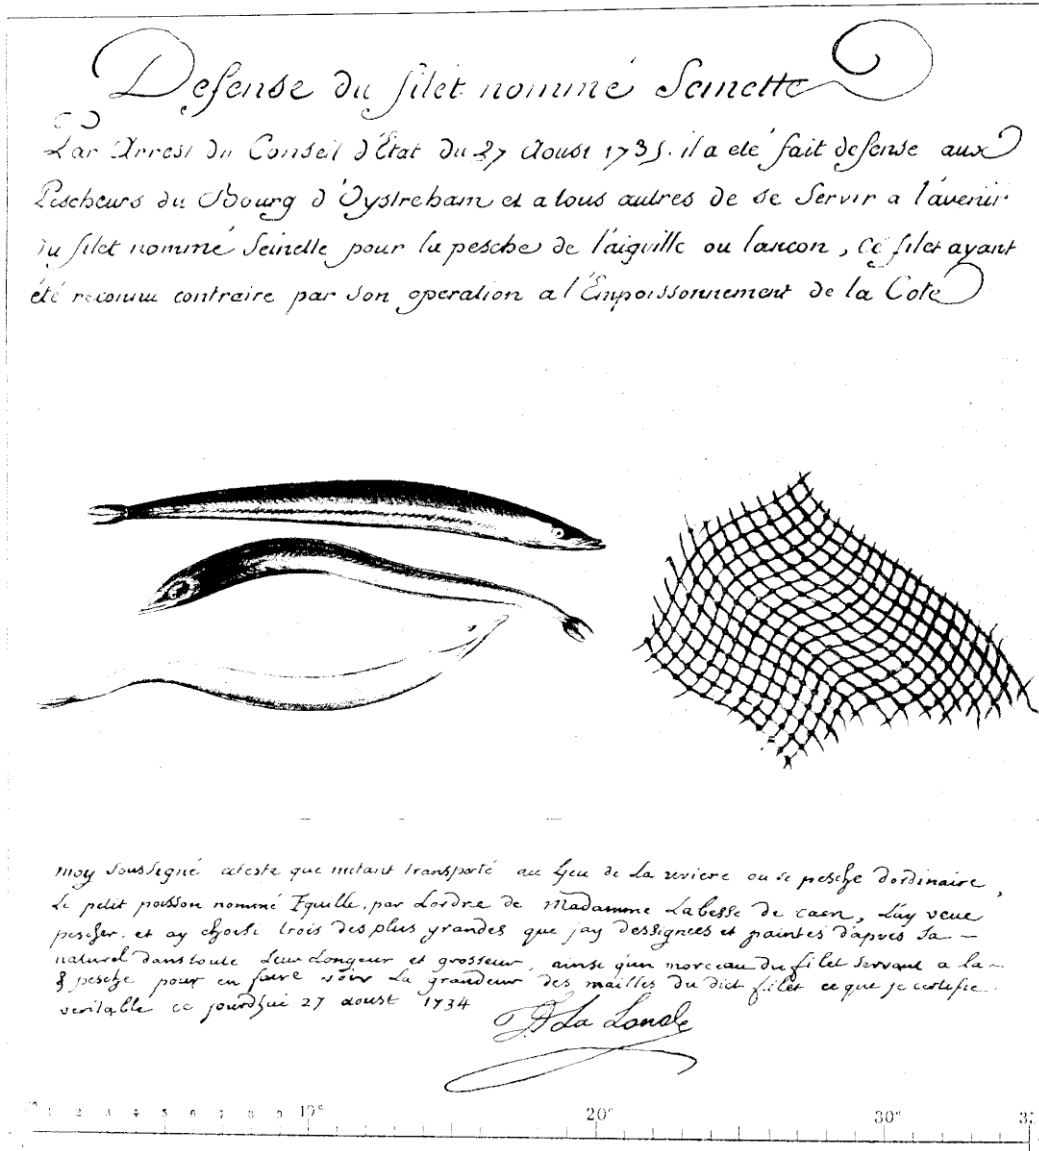 Defense du filet nommé Seinette
Par Arrest du Conseil d'Etat du 27 Aoust 1735. il a eté fait defense aux
Pescheurs du Bourg d'Oystreham et a tous autres de se Servir a l'avenir
du filet nommé Seinette pour la pesche de l'aiguille ou lancon, Ce filet ayant
été reconnu contraire par son operation a l'Empoissonnement de la Cote
moy Soussigné ateste que metant transporté au lieu de La riviere ou se pesche dordinaire,
Le petit poisson nommé Equille, par Lordre de Madamme Labesse de caen, Lay veue
pescher. et ay choisi trois des plus grandes que jay dessignees et paintes d'apres
naturel dans toute Leur Longeur et grosseur, ainsi qun morceau du filet servant a la
pesche pour en faire voir La grandeur des mailles du dict filet ce que je certifie
veritable ce jourdhui 27 aoust 1734
La Londe
1 2 3 4 5 6 7 8 9 10c 20c 30c